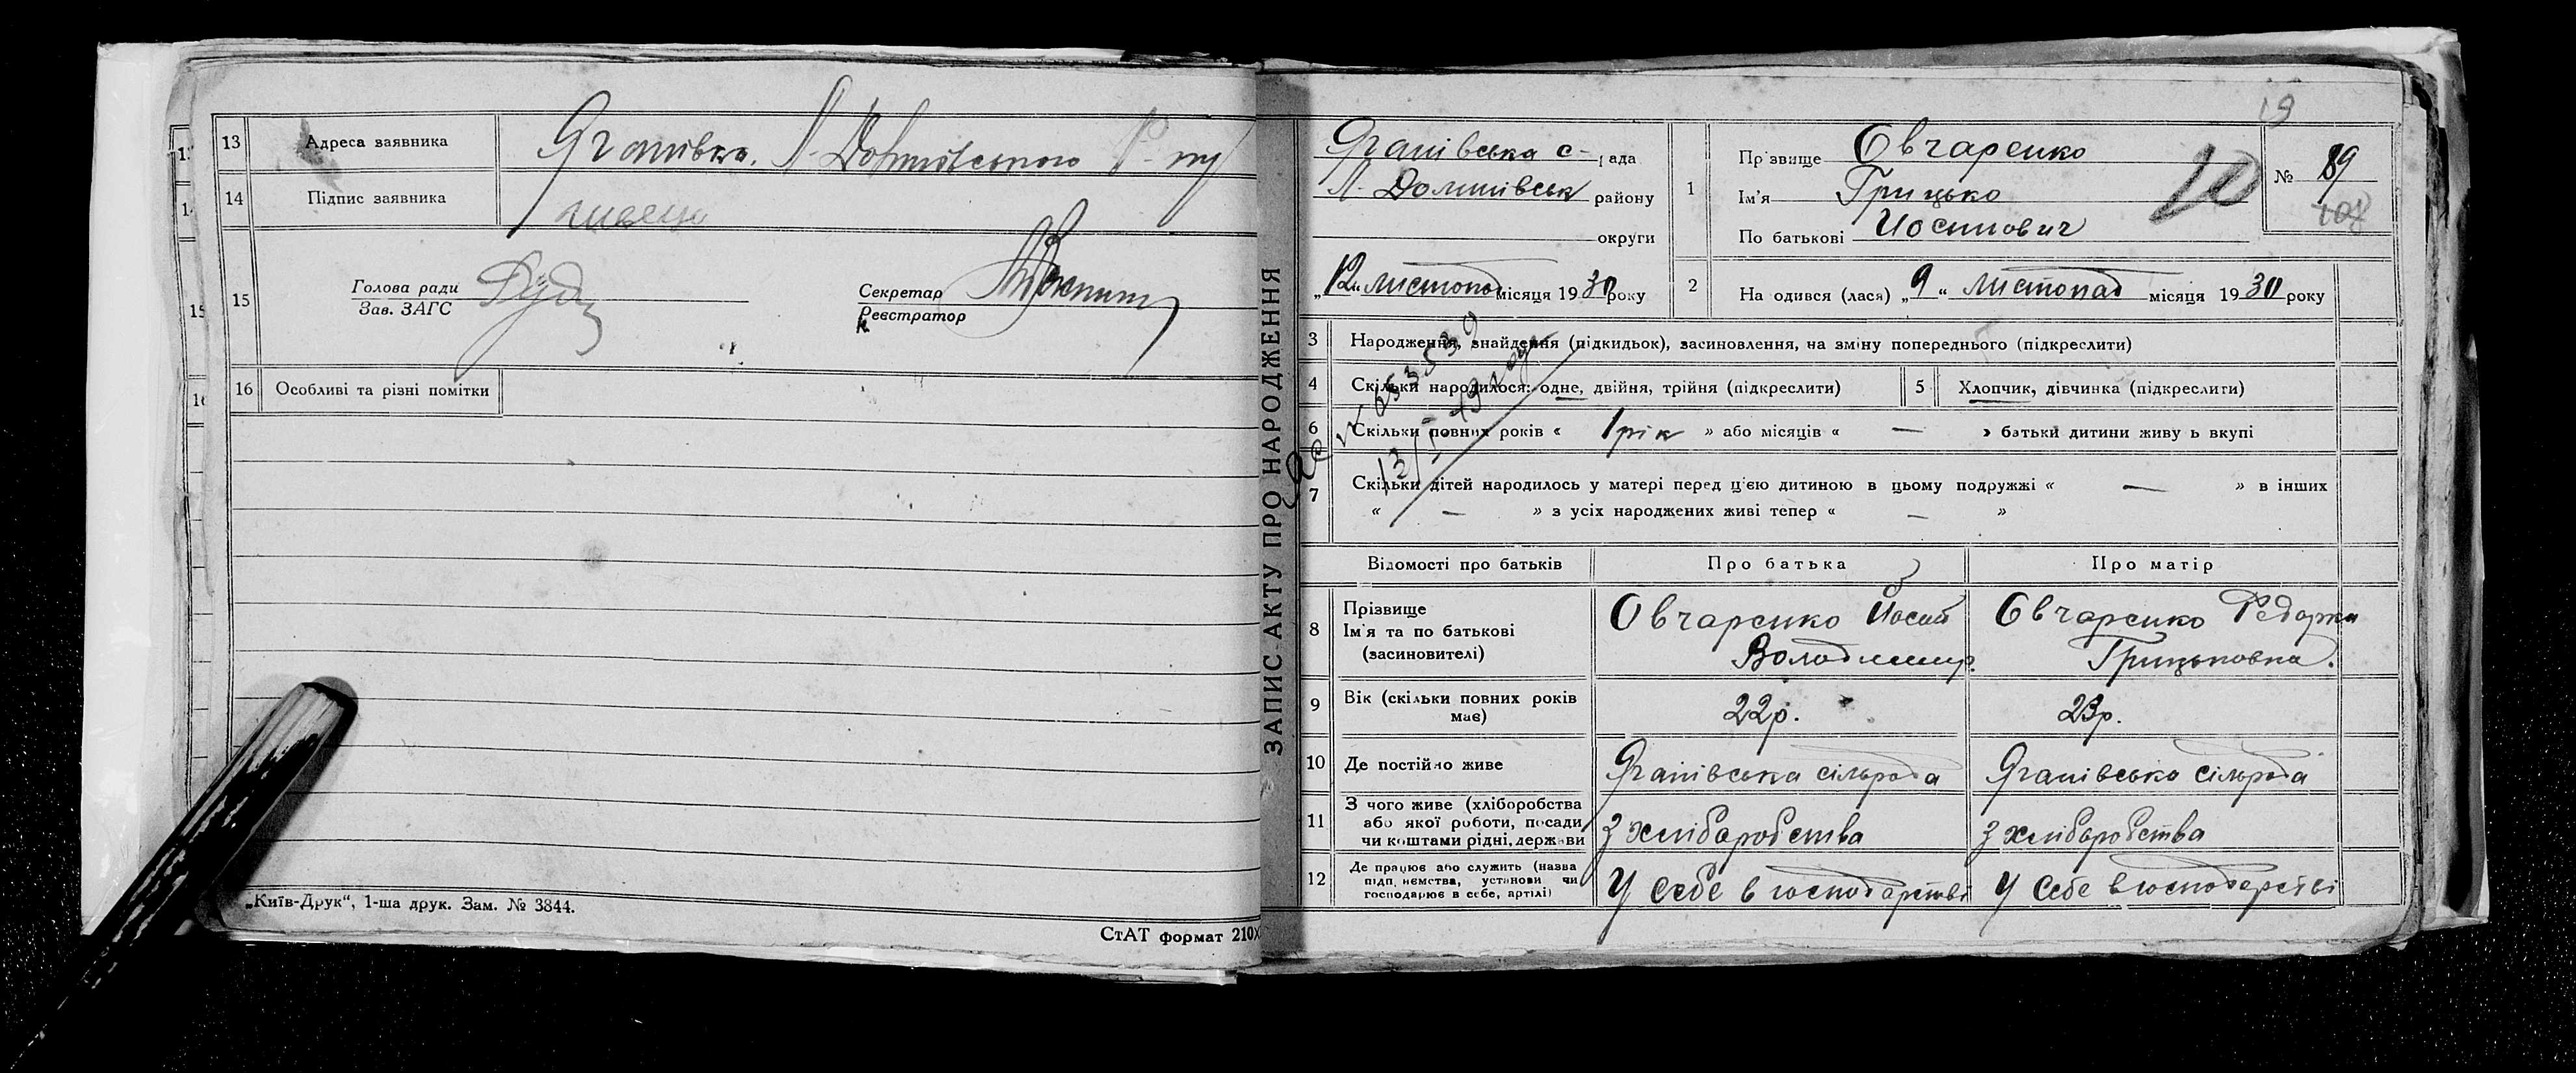 13 Адреса заявника Яганівка, Л-Долинського Р-ну
14 Підпис заявника
15 Голова ради
Зав. ЗАГС
Секретар
Реєстратор
16 Особливі та різні помітки
„Київ-Друк“, 1-ша друк. Зам. № 3844.
СтАТ формат 210х
ЗАПИС АКТУ ПРО НАРОДЖЕННЯ
19
с- рада
Л- Долинівськ району
округи
„12“ листопад місяця 1930 року
1 Прізвище Овчаренко
Ім'я Грицько
По батькові Йосипович
№ 89
2 На одився (лася) „9“ листопад місяця 1930 року
3 Народження, знайдення (підкидьок), засиновлення, на зміну попереднього (підкреслити)
4 Скільки народилося: одне, двійня, трійня (підкреслити) 5 Хлопчик, дівчинка (підкреслити)
6 Скільки повних років « 1 рік » або місяців « — » батьки дитини живу ь вкупі
7 Скільки дітей народилось у матері перед цією дитиною в цьому подружжі « — » в інших
« — » з усіх народжених живі тепер « — »
Відомості про батьків Про батька Про матір
8 Прізвище
Ім'я та по батькові
(засиновителі)
Овчаренко Йосип
Володимир.
Овчаренко Федорка
Грицьковна.
9 Вік (скільки повних років має) 22р. 23р.
10 Де постійно живе сільрада сільрада
11 З чого живе (хліборобства
або якої роботи, посади
чи коштами рідні, держави
З хліборобства З хліборобства
12 Де працює або служить (назва
підп иємства, установи чи
господарює в себе, артілі)
У себе в господарстві У себе в господарстві